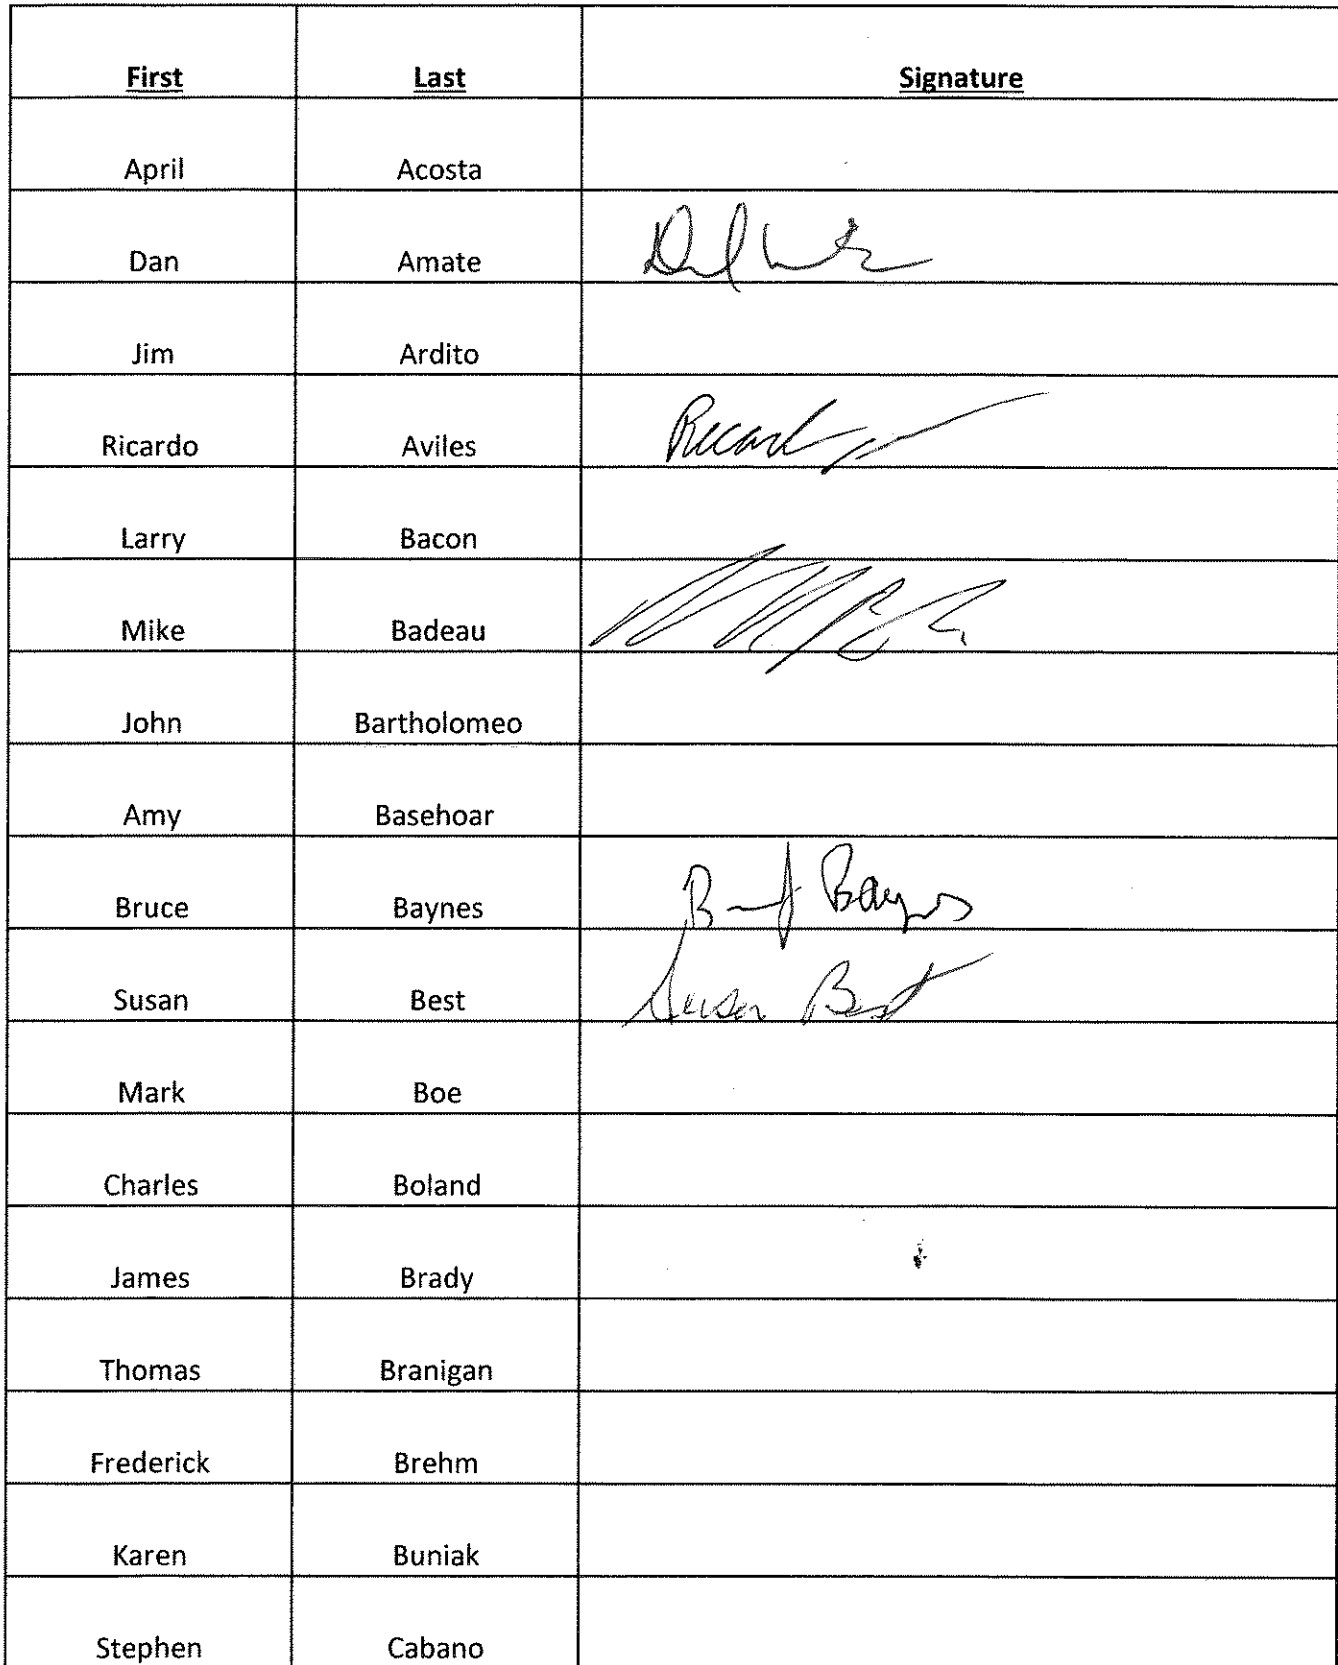 First Last Signature
April Acosta
Dan Amate
Jim Ardito
Ricardo Aviles
Larry Bacon
Mike Badeau
John Bartholomeo
Amy Basehoar
Bruce Baynes Baynes
Susan Best Susan Best
Mark Boe
Charles Boland
James Brady
Thomas Branigan
Frederick Brehm
Karen Buniak
Stephen Cabano